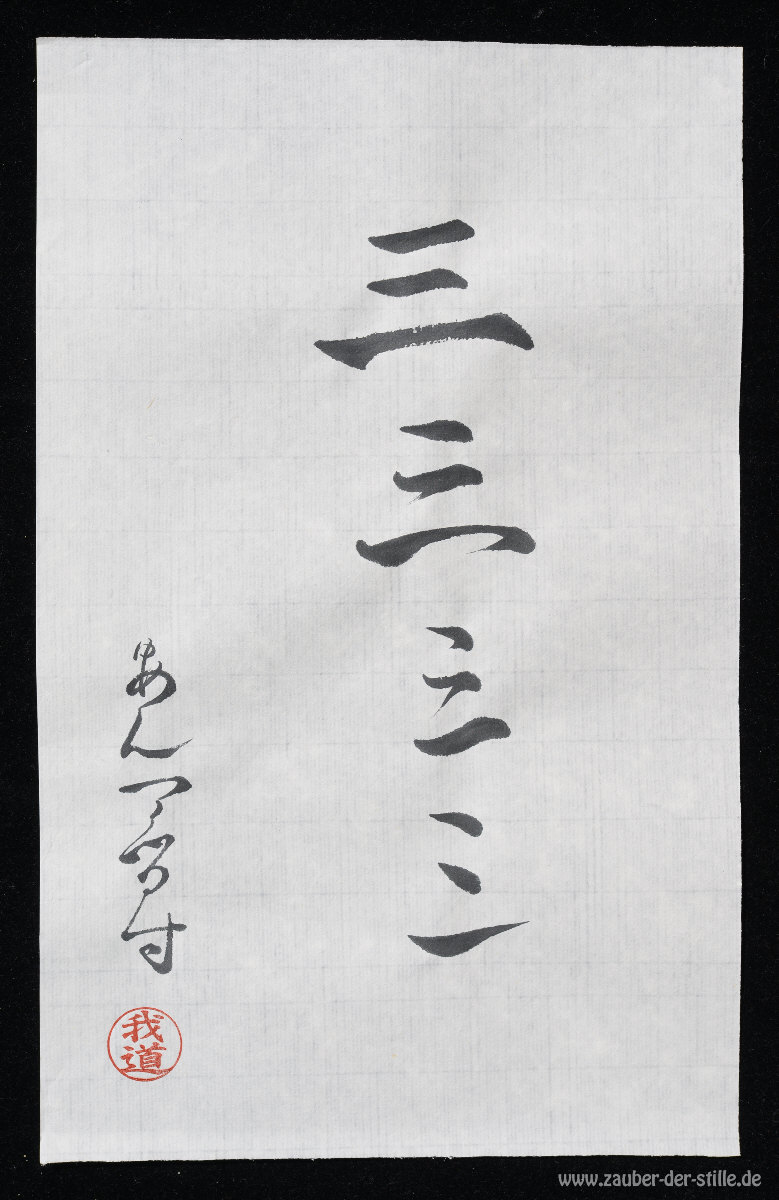 三三三三
あん
我道
www.zauber-der-stille.de